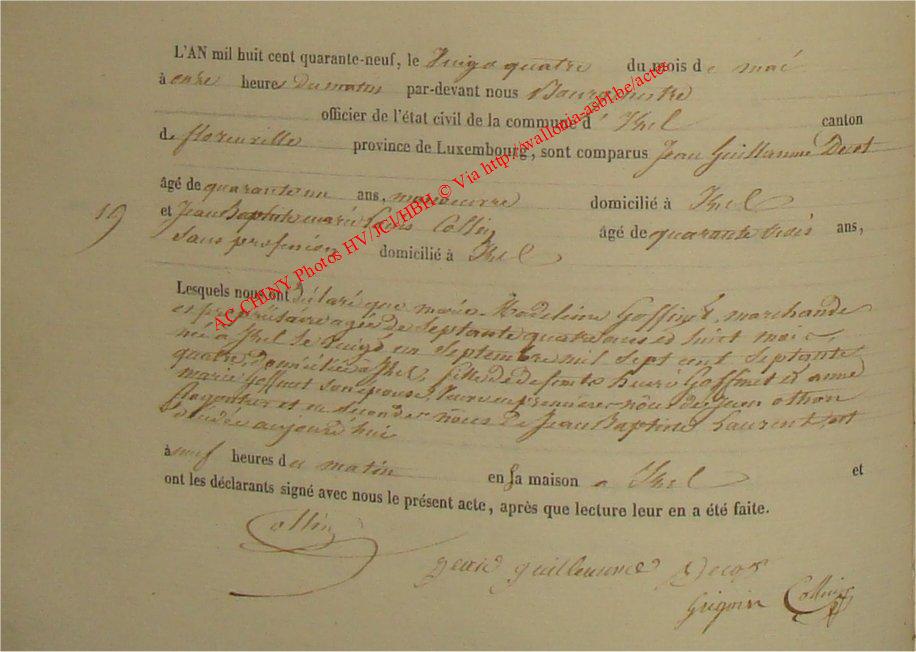 L'AN mil huit cent quarante-neuf, le vingt quatre du mois de mai
à onze heures du matin par-devant nous Bourgmestre
officier de l'état civil de la commune d' Izel canton
de florenville province de Luxembourg, sont comparus Jean Guillaume
âgé de quarante un ans, manoeuvre domicilié à Izel
19 et Jean Baptiste marie Collin âgé de quarante trois ans,
sans profession domicilié à Izel
Lesquels nous ont déclaré que marie Madeleine Goffinet, marchande
et propriétaire agée de septante quatre ans et huit mois,
née à Izel le vingt un septembre mil sept cent septante
quatre, domiciliée à Izel, fille de defunts henri Goffinet et anne
marie Goffinet son épouse, Veuve en première nôce de Jean othon
et en seconde nôces de Jean Baptiste Laurent, est
décédée aujourd'hui
à neuf heures du matin en sa maison a Izel et
ont les déclarants signé avec nous le présent acte, après que lecture leur en a été faite.
Collin
jean guillaume
Collin
AC CHINY Photos HV/JCI/HBH © Via http://wallonia-asbl.be/actes